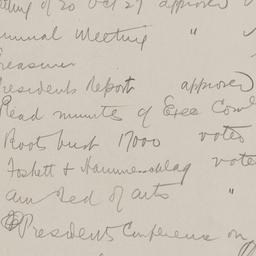 eting of 20 Oct 27 approved
nnual Meeting "
reasurer
residents Report approved
Read minutes of Exec Com
Root bust 17000 voted
Foskett & Hammerschlag vote
am Fed of arts "
Presidents Conference on